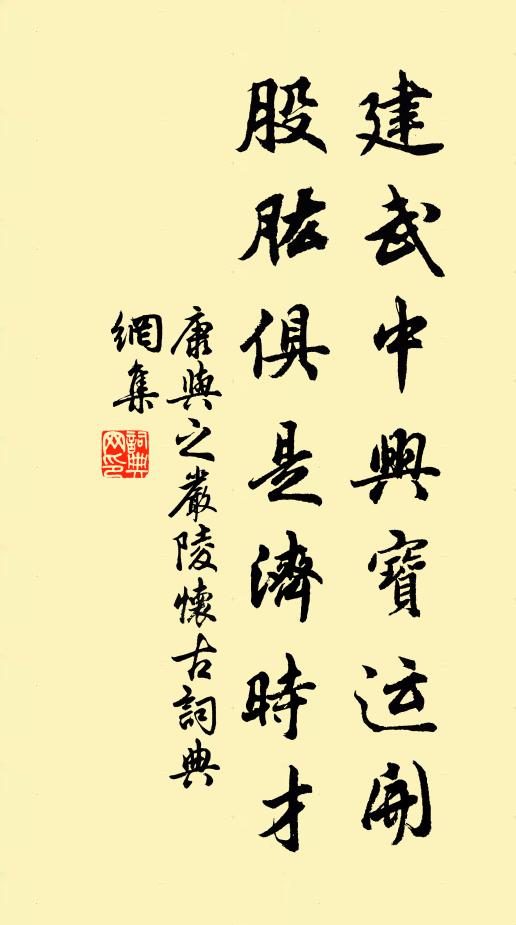 建武中興寶运開
股肱俱是濟時才
康與之嚴陵懷古詞典
網集
詞典
网印